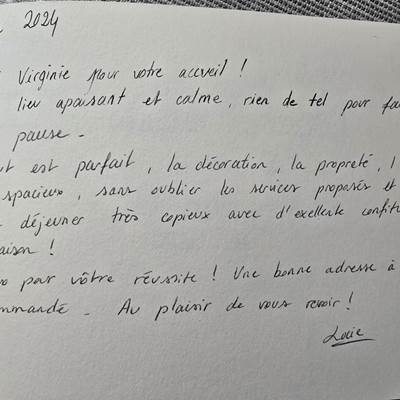 2024
Virginie pour votre accueil !
lieu apaisant et calme, rien de tel pour fa
pause.
t est parfait, la décoration, la propreté, l
spacieux, sans oublier les services proposés et
déjeuner très copieux avec d'exellente confitu
aison !
o pour vôtre réussite ! Une bonne adresse à
mmandé. Au plaisir de vous revoir !